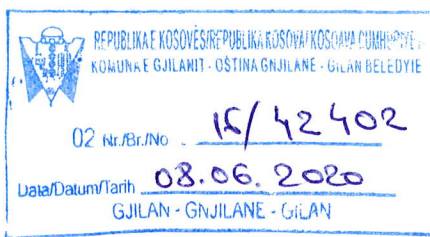 REPUBLIKA E KOSOVËS/REPUBLIKA KOSOVA/KOSOAVA
KOMUNA E GJILANIT - OŠTINA GNJILANE - GILAN BELEDYIE
02 Nr./Br./No 42402
Data/Datum/Tarih 08.06.2020
GJILAN - GNJILANE - GILAN